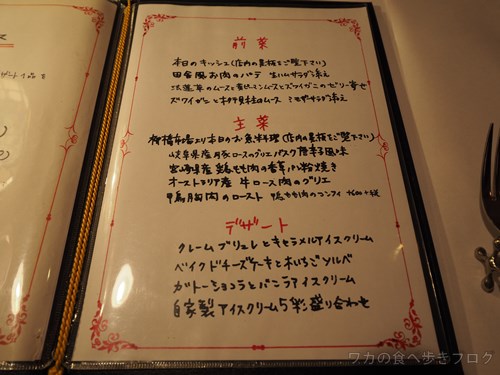 前菜
本日のキッシュ(店内の黒板をご覧下さい)
田舎風お肉のパテ 生ハムサラダ添え
法蓮草のムースと黄ピーマンムースとズワイガニのゼリー寄せ
ズワイガニと帆立貝柱のムース ミモザサラダ添え
主菜
柳橋市場より本日のお魚料理(店内の黒板をご覧下さい)
岐阜県産豚ロースのグリエ バスク唐辛子風味
宮崎県産鶏もも肉の香草パン粉焼き
オーストラリア産 牛ロース肉のグリエ
鴨胸肉のロースト 鴨もも肉のコンフィ +600+税
デザート
クレームブリュレとキャラメルアイスクリーム
ベイクドチーズケーキと木いちごソルベ
ガトーショコラとバニラアイスクリーム
自家製アイスクリーム5彩盛り合わせ
ワカの食べ歩きブログ